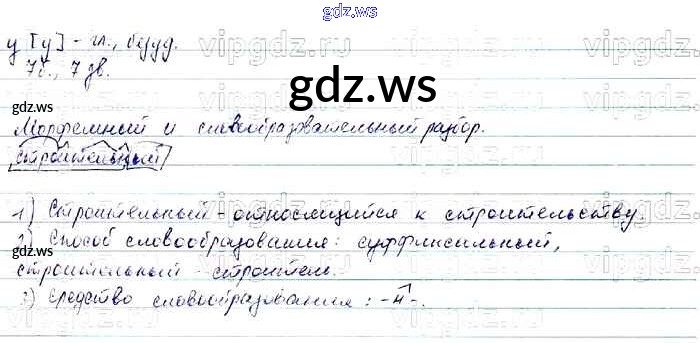 gdz.ws
у [у] - гл., безуд.
7б., 7 зв.
gdz.ws
gdz.ws
Морфемный и словообразовательный разбор.
строительный
1) Строительный - относящийся к строительству.
2) Способ словообразования: суффиксальный,
строительный - строитель.
3) Средство словообразования: -н-.
gdz.ws
vipgdz.ru
vipgdz.ru
vipgdz.ru
vipgdz.ru